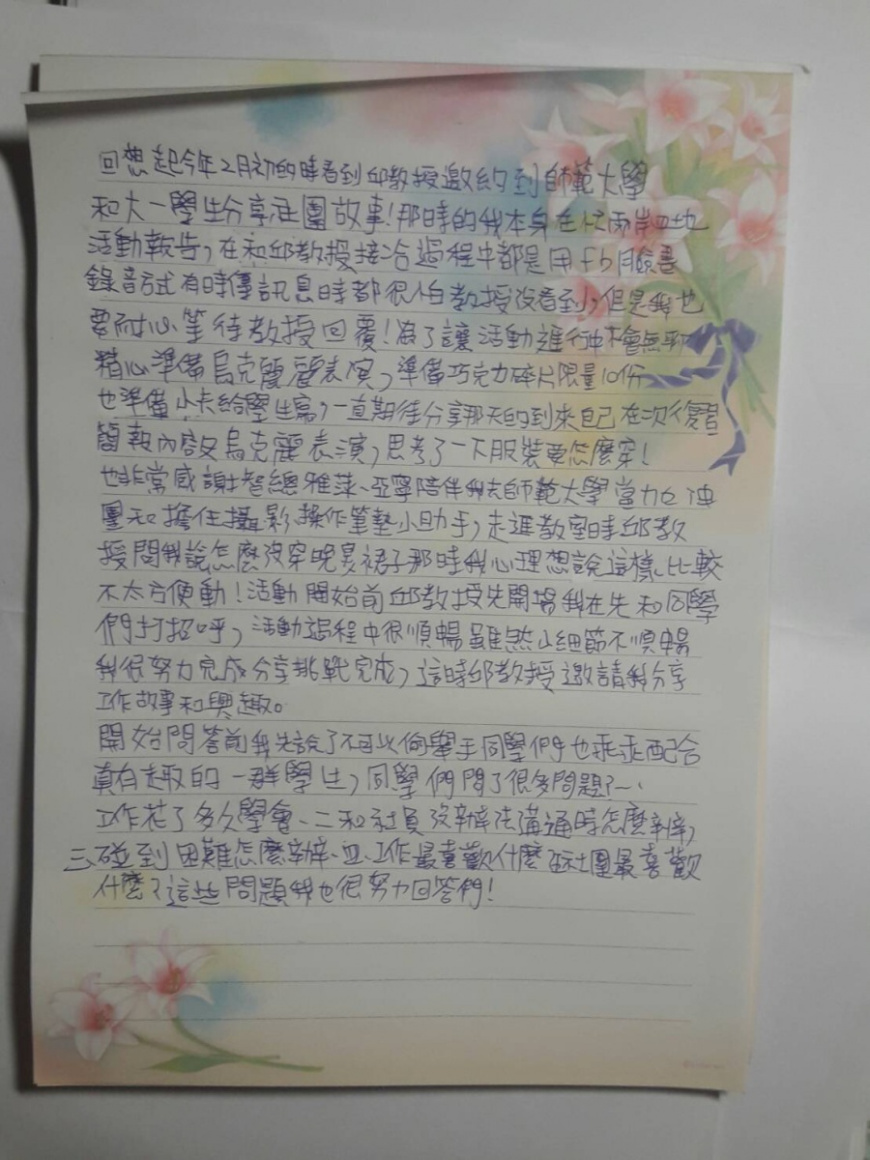 回想起今年2月初的時看到邱教授邀約到師範大學
和大一學生分享社團故事!那時的我本身在忙兩岸四地
活動報告,在和邱教授接洽過程中都是用fb臉書
錄音方式有時傳訊息時都很怕教授沒看到,但是我也
要耐心等待教授回覆!為了讓活動進行中不會無聊
精心準備烏克麗麗表演,準備巧克力碎片限量10份
也準備小卡給學生寫,一直期待分享那天的到來自己在次復習
簡報內容及烏克麗表演,思考了一下服裝要怎麼穿!
也非常感謝智總雅萍、亞寧陪伴我去師範大學當加油
團和擔任攝影、操作筆墊小助手,走進教室時邱教
授問我說怎麼沒穿晚宴裙子那時我心理想說這樣比較
不太方便動!活動開始前邱教授先開場我在先和同學
們打招呼,活動過程中很順暢雖然小細節不順暢
我很努力完成分享挑戰完成,這時邱教授邀請我分享
工作故事和興趣。
開始問答前我先說了不可以偷舉手同學們也乖乖配合
真有趣的一群學生,同學們問了很多問題?一、
工作花了多久學會、二和社員沒辦法溝通時怎麼辦,
三、碰到困難怎麼辦、四、工作最喜歡什麼在社團最喜歡
什麼?這些問題我也很努力回答們!